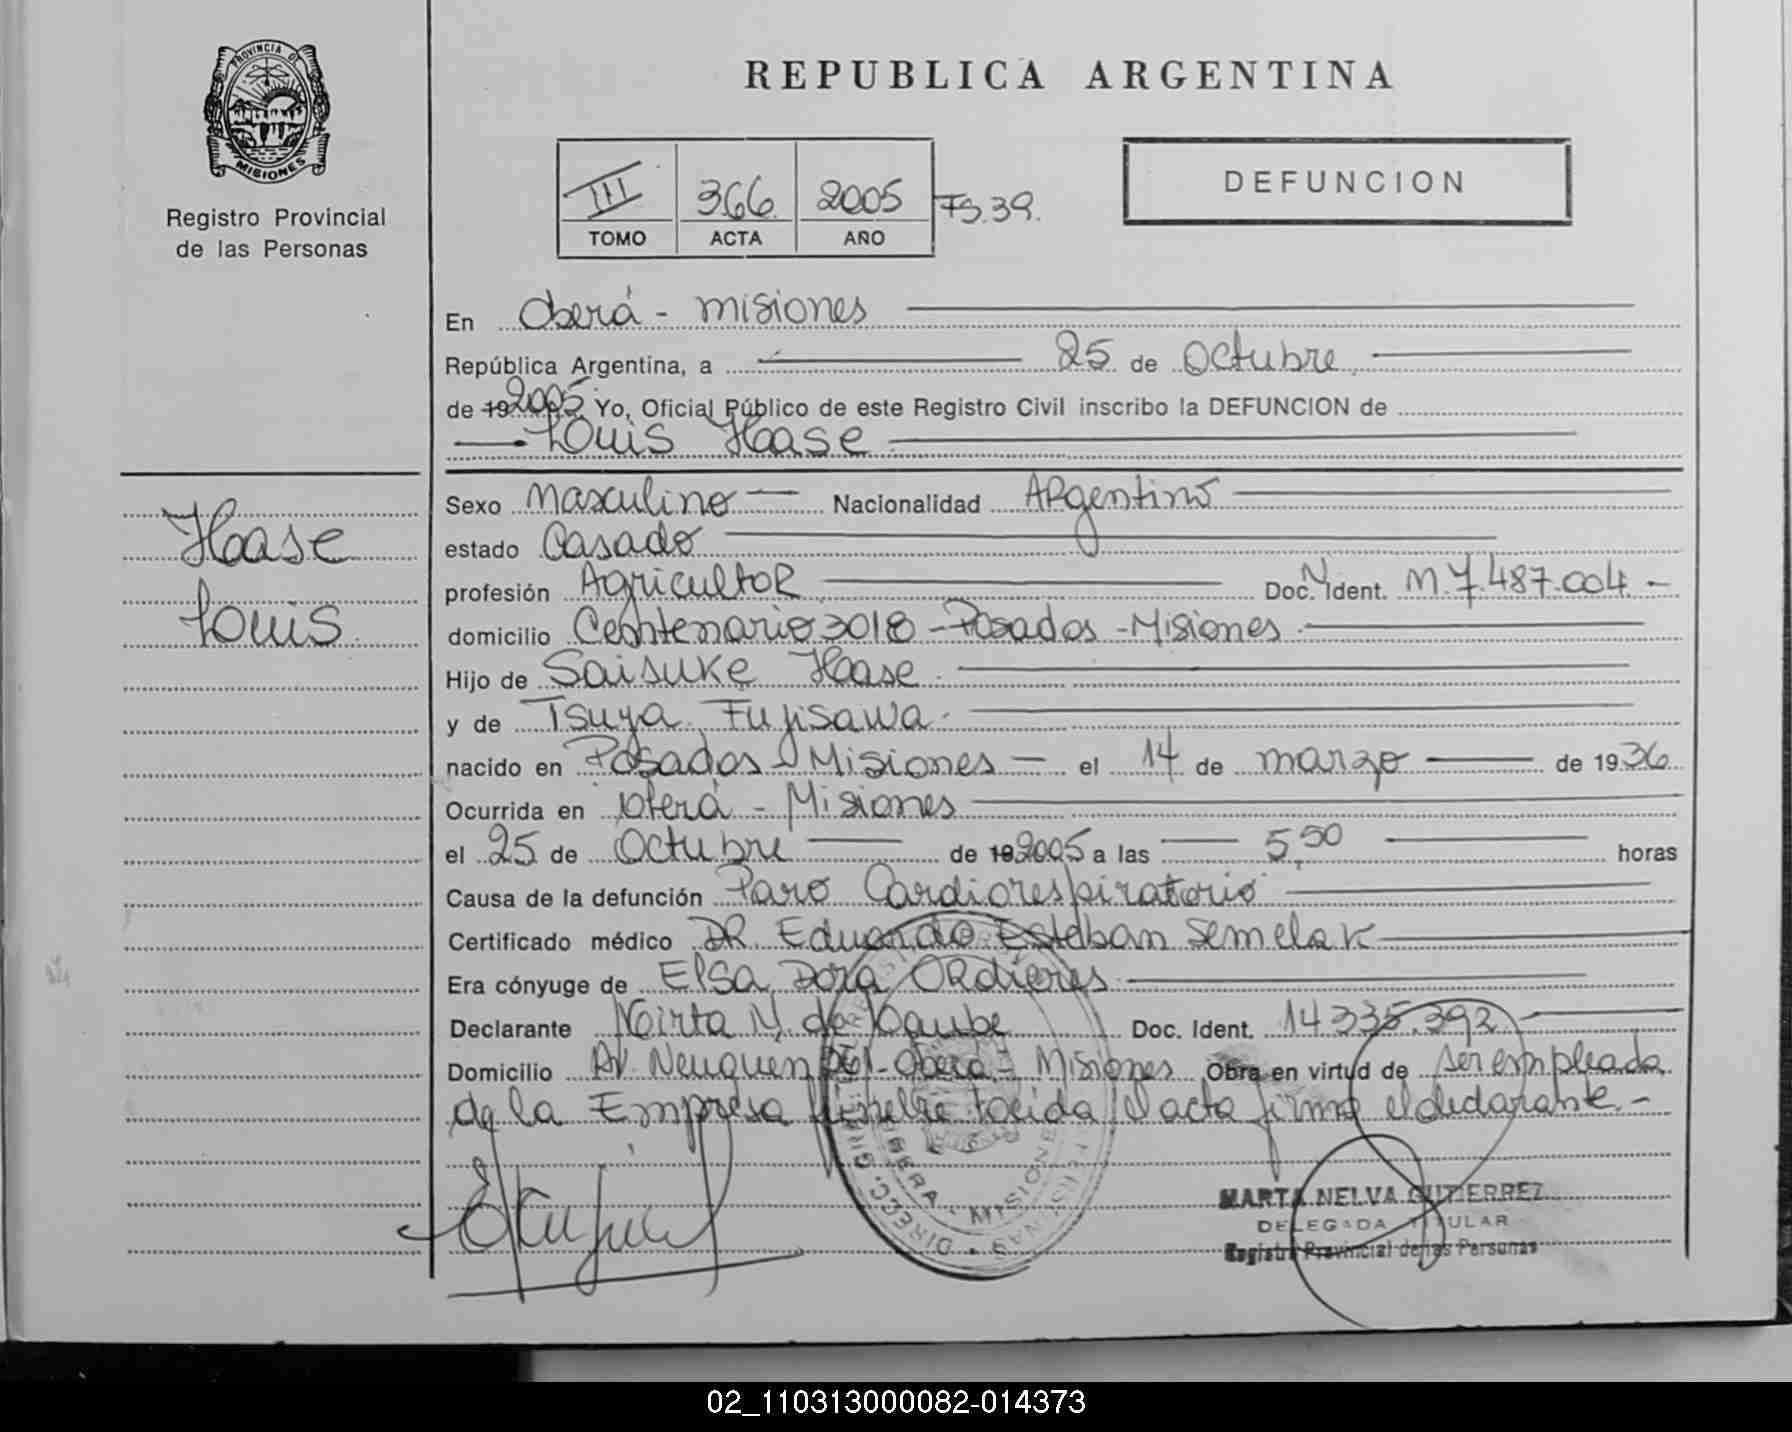 PROVINCIA DE
MISIONES
Registro Provincial
de las Personas
REPUBLICA ARGENTINA
III 366 2005 Fº.39.
TOMO ACTA AÑO
DEFUNCION
En Oberá - Misiones
República Argentina, a 25 de Octubre
de 19 2005 Yo, Oficial Público de este Registro Civil inscribo la DEFUNCION de
Louis Hase
Hase
Louis
Sexo Masculino Nacionalidad Argentino
estado Casado
profesión Agricultor Doc. N Ident. M.7.487.004.-
domicilio Centenario 3018 - Posadas - Misiones
Hijo de Saisuke Hase
y de Tsuya Fujisawa
nacido en Posadas Misiones el 14 de marzo de 1936
Ocurrida en Oberá - Misiones
el 25 de Octubre de 19 2005 a las 5,50 horas
Causa de la defunción Paro Cardiorespiratorio
Certificado médico DR. Eduardo Esteban Semelak
Era cónyuge de Elsa Dora Ordieres
Declarante Mirta N. de Doc. Ident. 14.335.392
Domicilio Av. Neuquen - Oberá - Misiones Obra en virtud de ser empleada
de la Empresa funebre leida el acta firma el declarante.-
OBERA - MISIONES
MARTA NELVA GUTIERREZ
DELEGADA TITULAR
Registro Provincial de las Personas
02_110313000082-014373